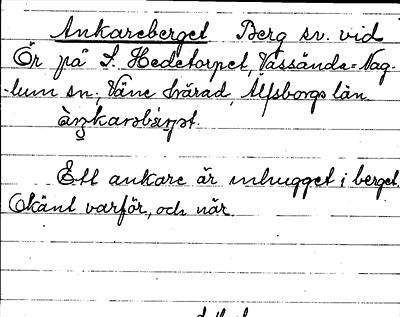 Ankareberget Berg sv. vid
Ör på S. Hedetorpet, Vassända=Nag-
lum sn; Väne härad, Älfsborgs län.
Ett ankare är inhugget i berget.
Okänt varför, och när.